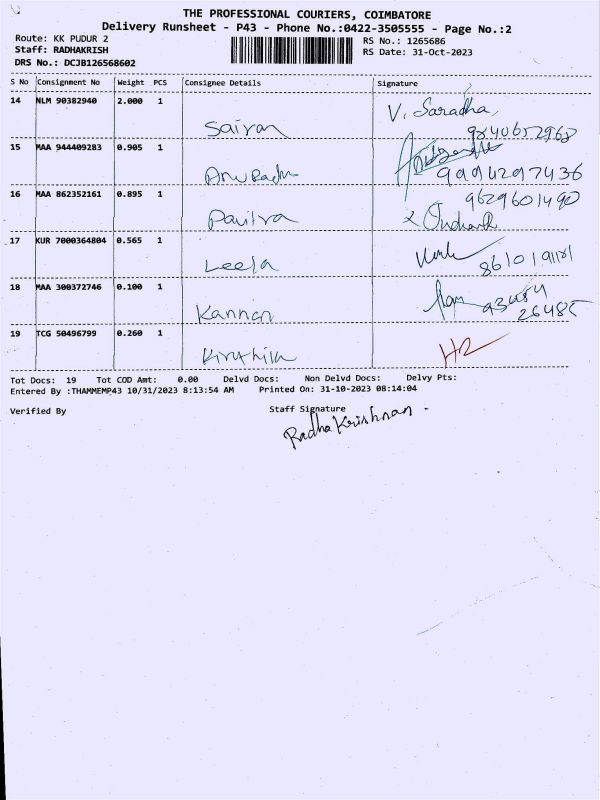 THE PROFESSIONAL COURIERS, COIMBATORE
Delivery Runsheet - P43 - Phone No.:0422-3505555 - Page No.:2
Route: KK PUDUR 2
RS No.: 1265686
Staff: RADHAKRISH
RS Date: 31-Oct-2023
DRS No.: DCJB126568602
S No Consignment No Weight PCS Consignee Details Signature
14 NLM 90382940 2.000 1 Sairam V. Saradha,
9840652968
15 MAA 944409283 0.905 1 Anu Radha
9994297436
16 MAA 862352161 0.895 1 Pavitra
9629601490
17 KUR 7000364804 0.565 1 Leela
8610191181
18 MAA 300372746 0.100 1 Kannan
93454
26485
19 TCG 50496799 0.260 1 Kiruthika
Tot Docs: 19 Tot COD Amt: 0.00 Delvd Docs: Non Delvd Docs: Delvy Pts:
Entered By :THAMMEMP43 10/31/2023 8:13:54 AM Printed On: 31-10-2023 08:14:04
Verified By Staff Signature
RadhaKrishnan.